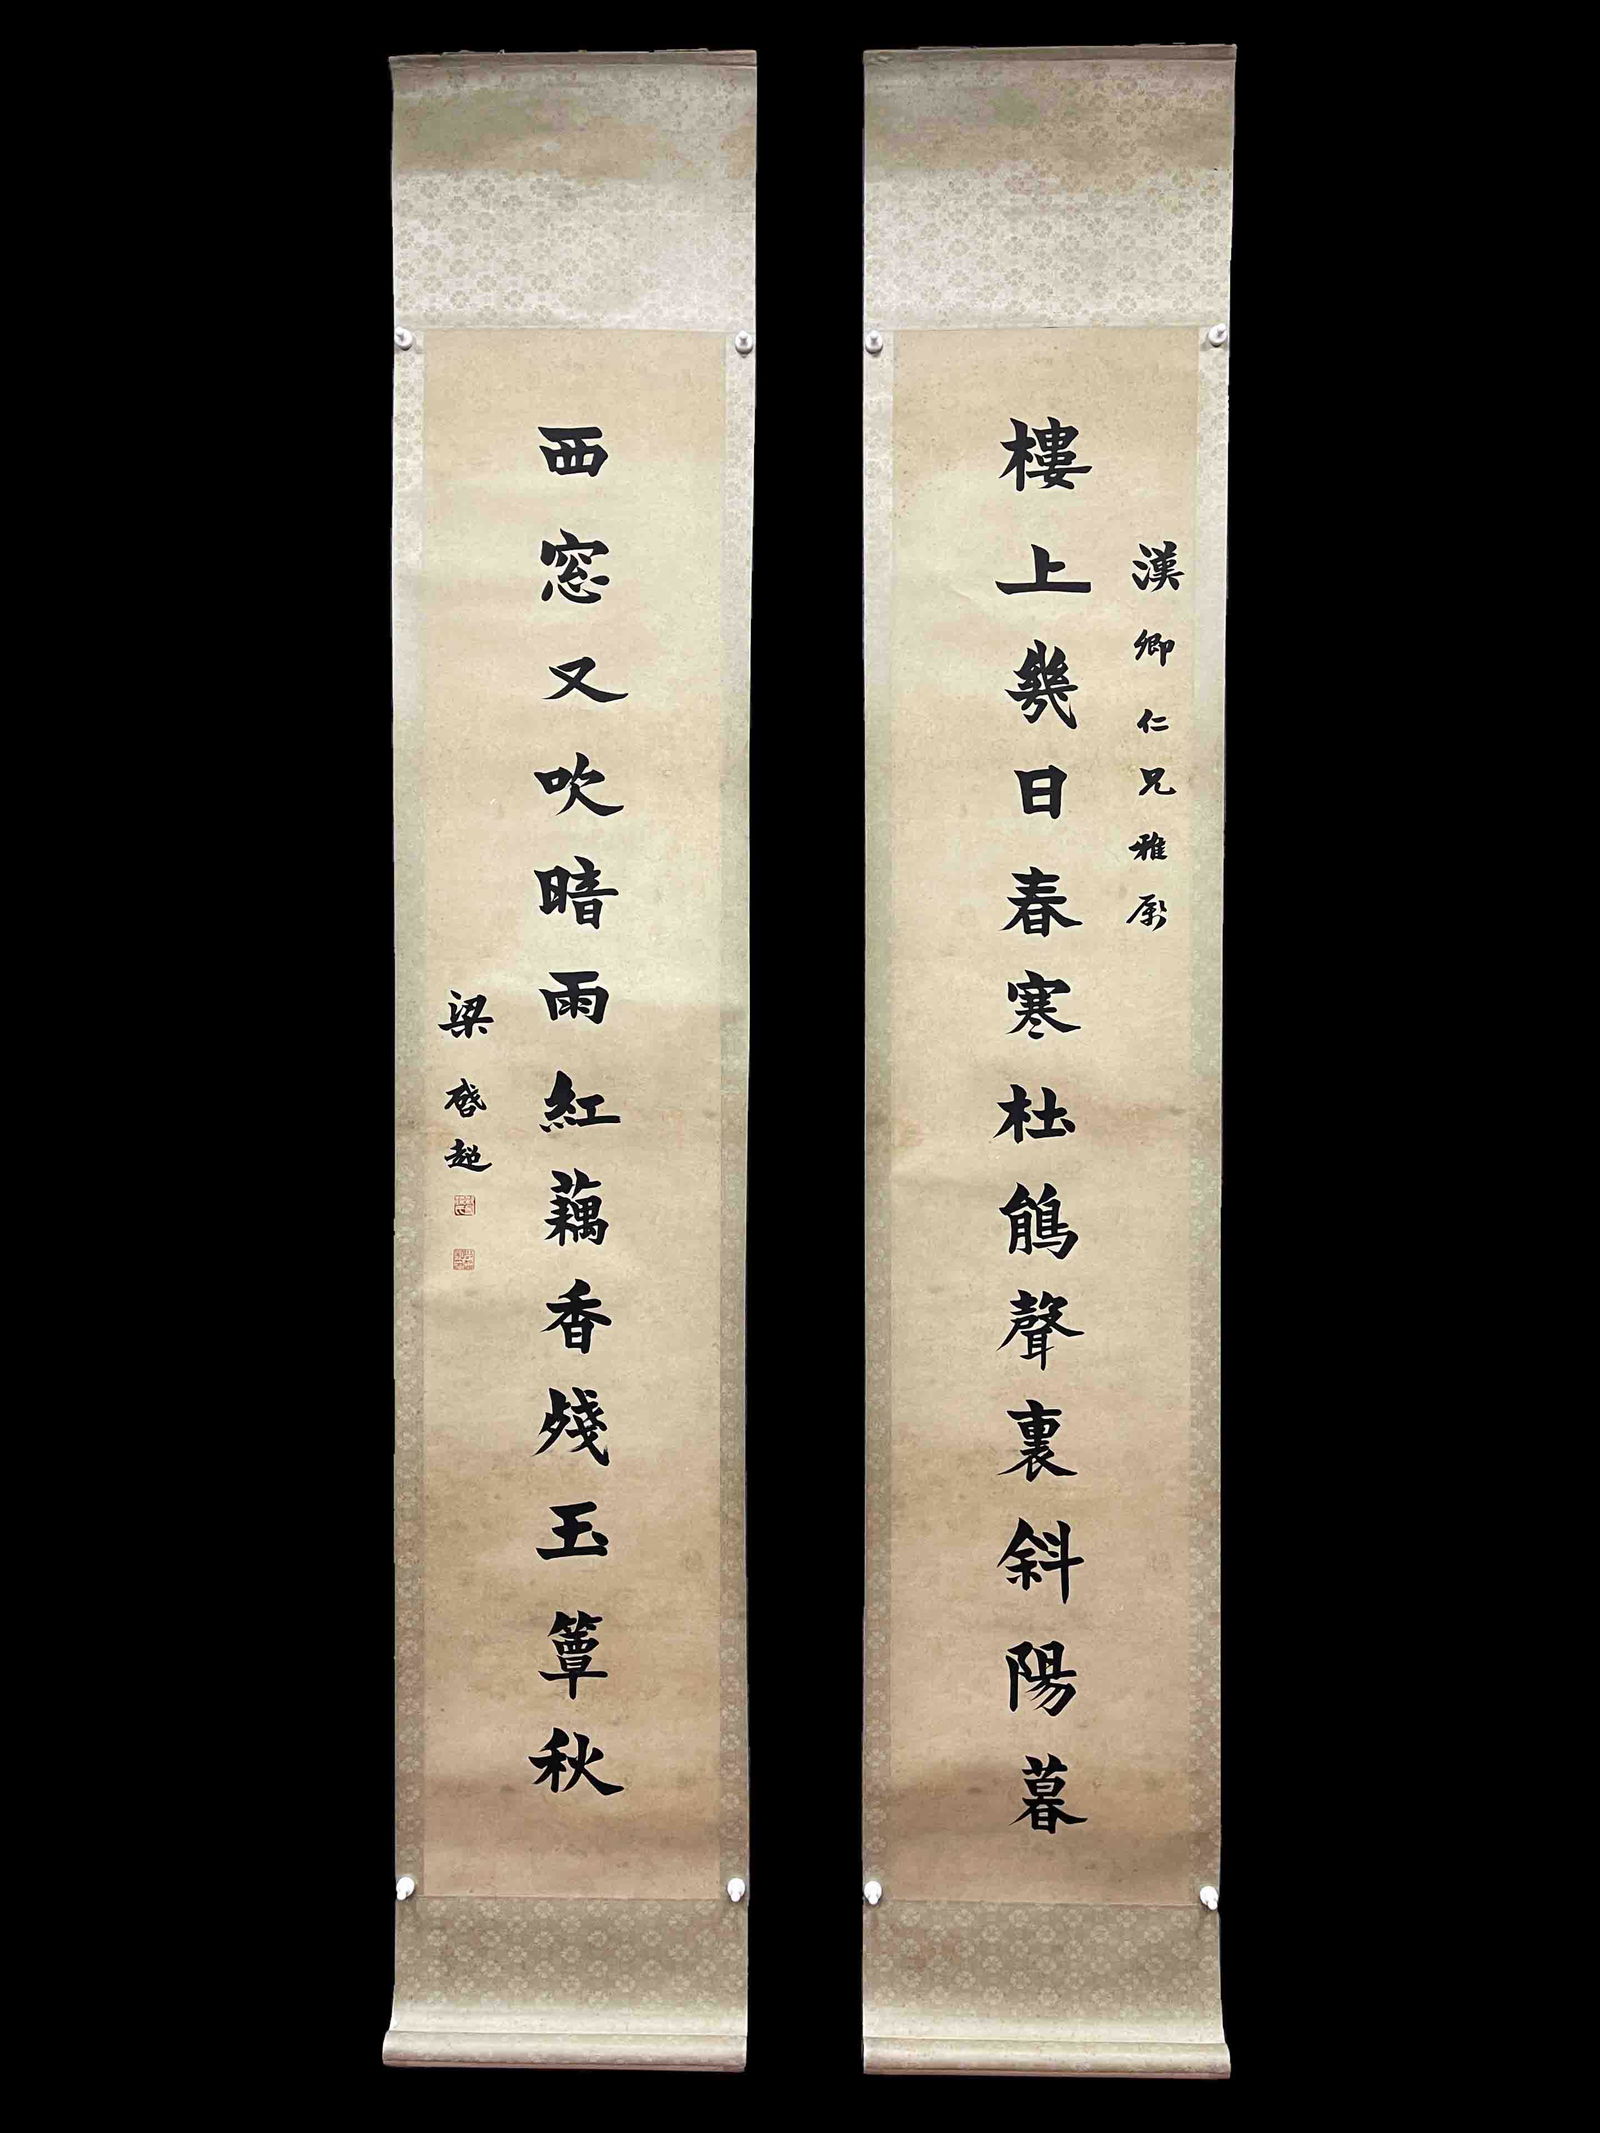 漢卿仁兄雅屬
樓上幾日春寒杜鵑聲裏斜陽暮
西窓又吹暗雨紅藕香殘玉簟秋
梁啓超